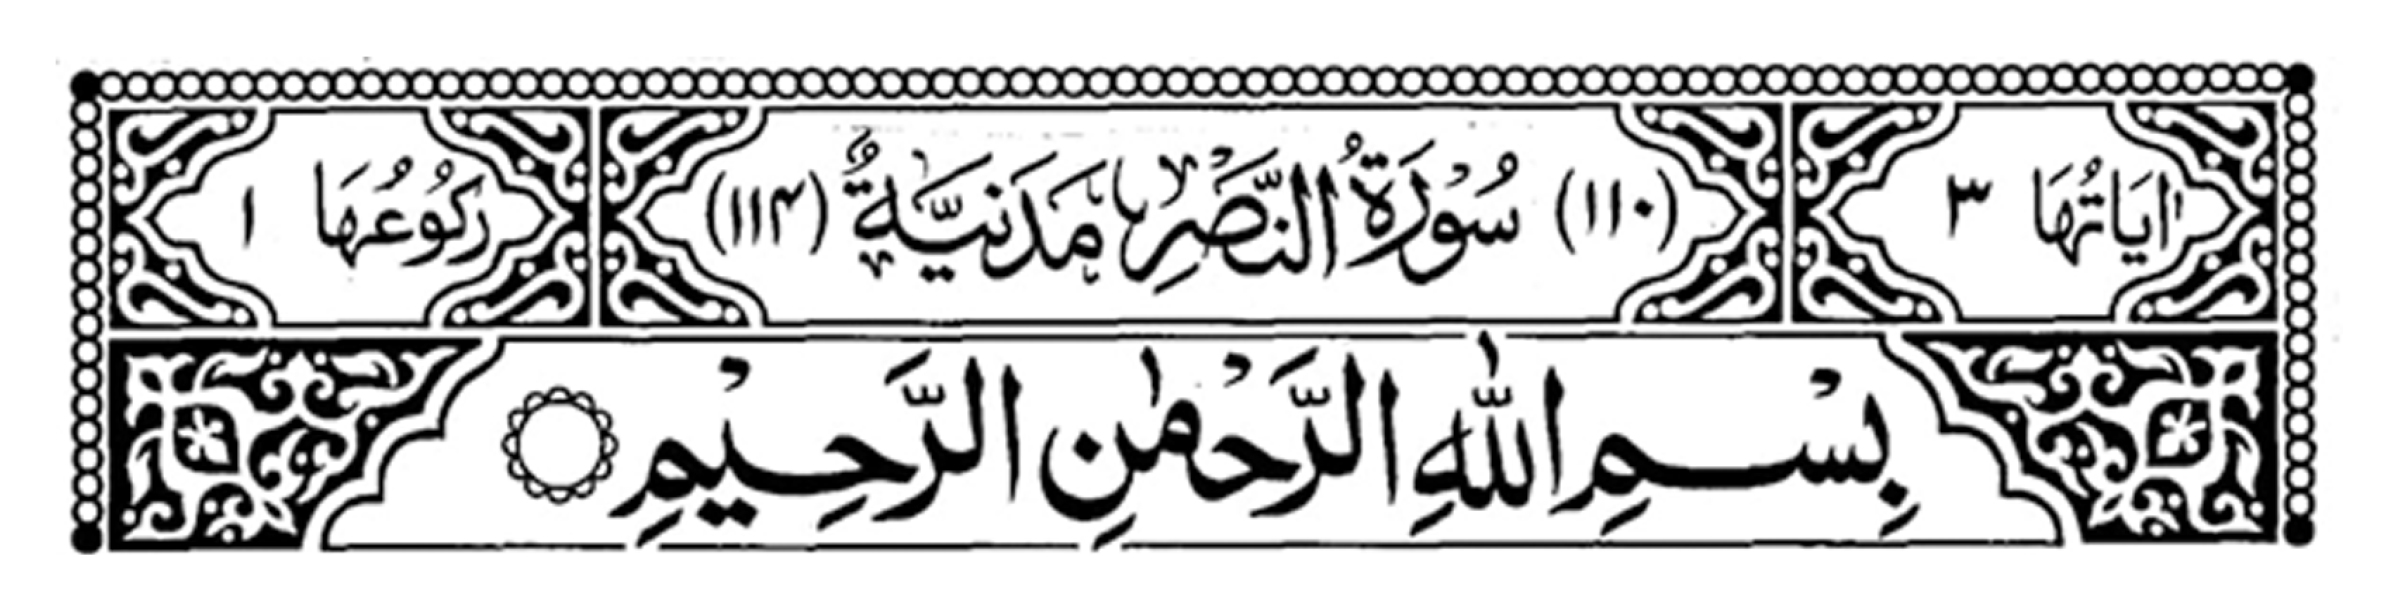 اٰیَاتُهَا ٣ (١١٠) سُوْرَةُ النَّصْرِ مَدَنِيَّةٌ (١١۴) رُكُوْعُهَا ١
بِسْمِ اللّٰهِ الرَّحْمٰنِ الرَّحِيْمِ